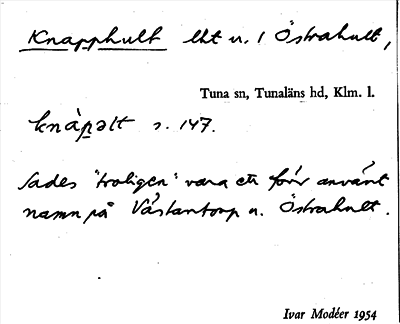 Knapphult lht u. / Östrahult,
Tuna sn, Tunaläns hd, Klm. l.
knàpəlt s. 147.
Sades "troligen" vara ett förr använt
namn på Västantorp u. Östrahult.
Ivar Modéer 1954